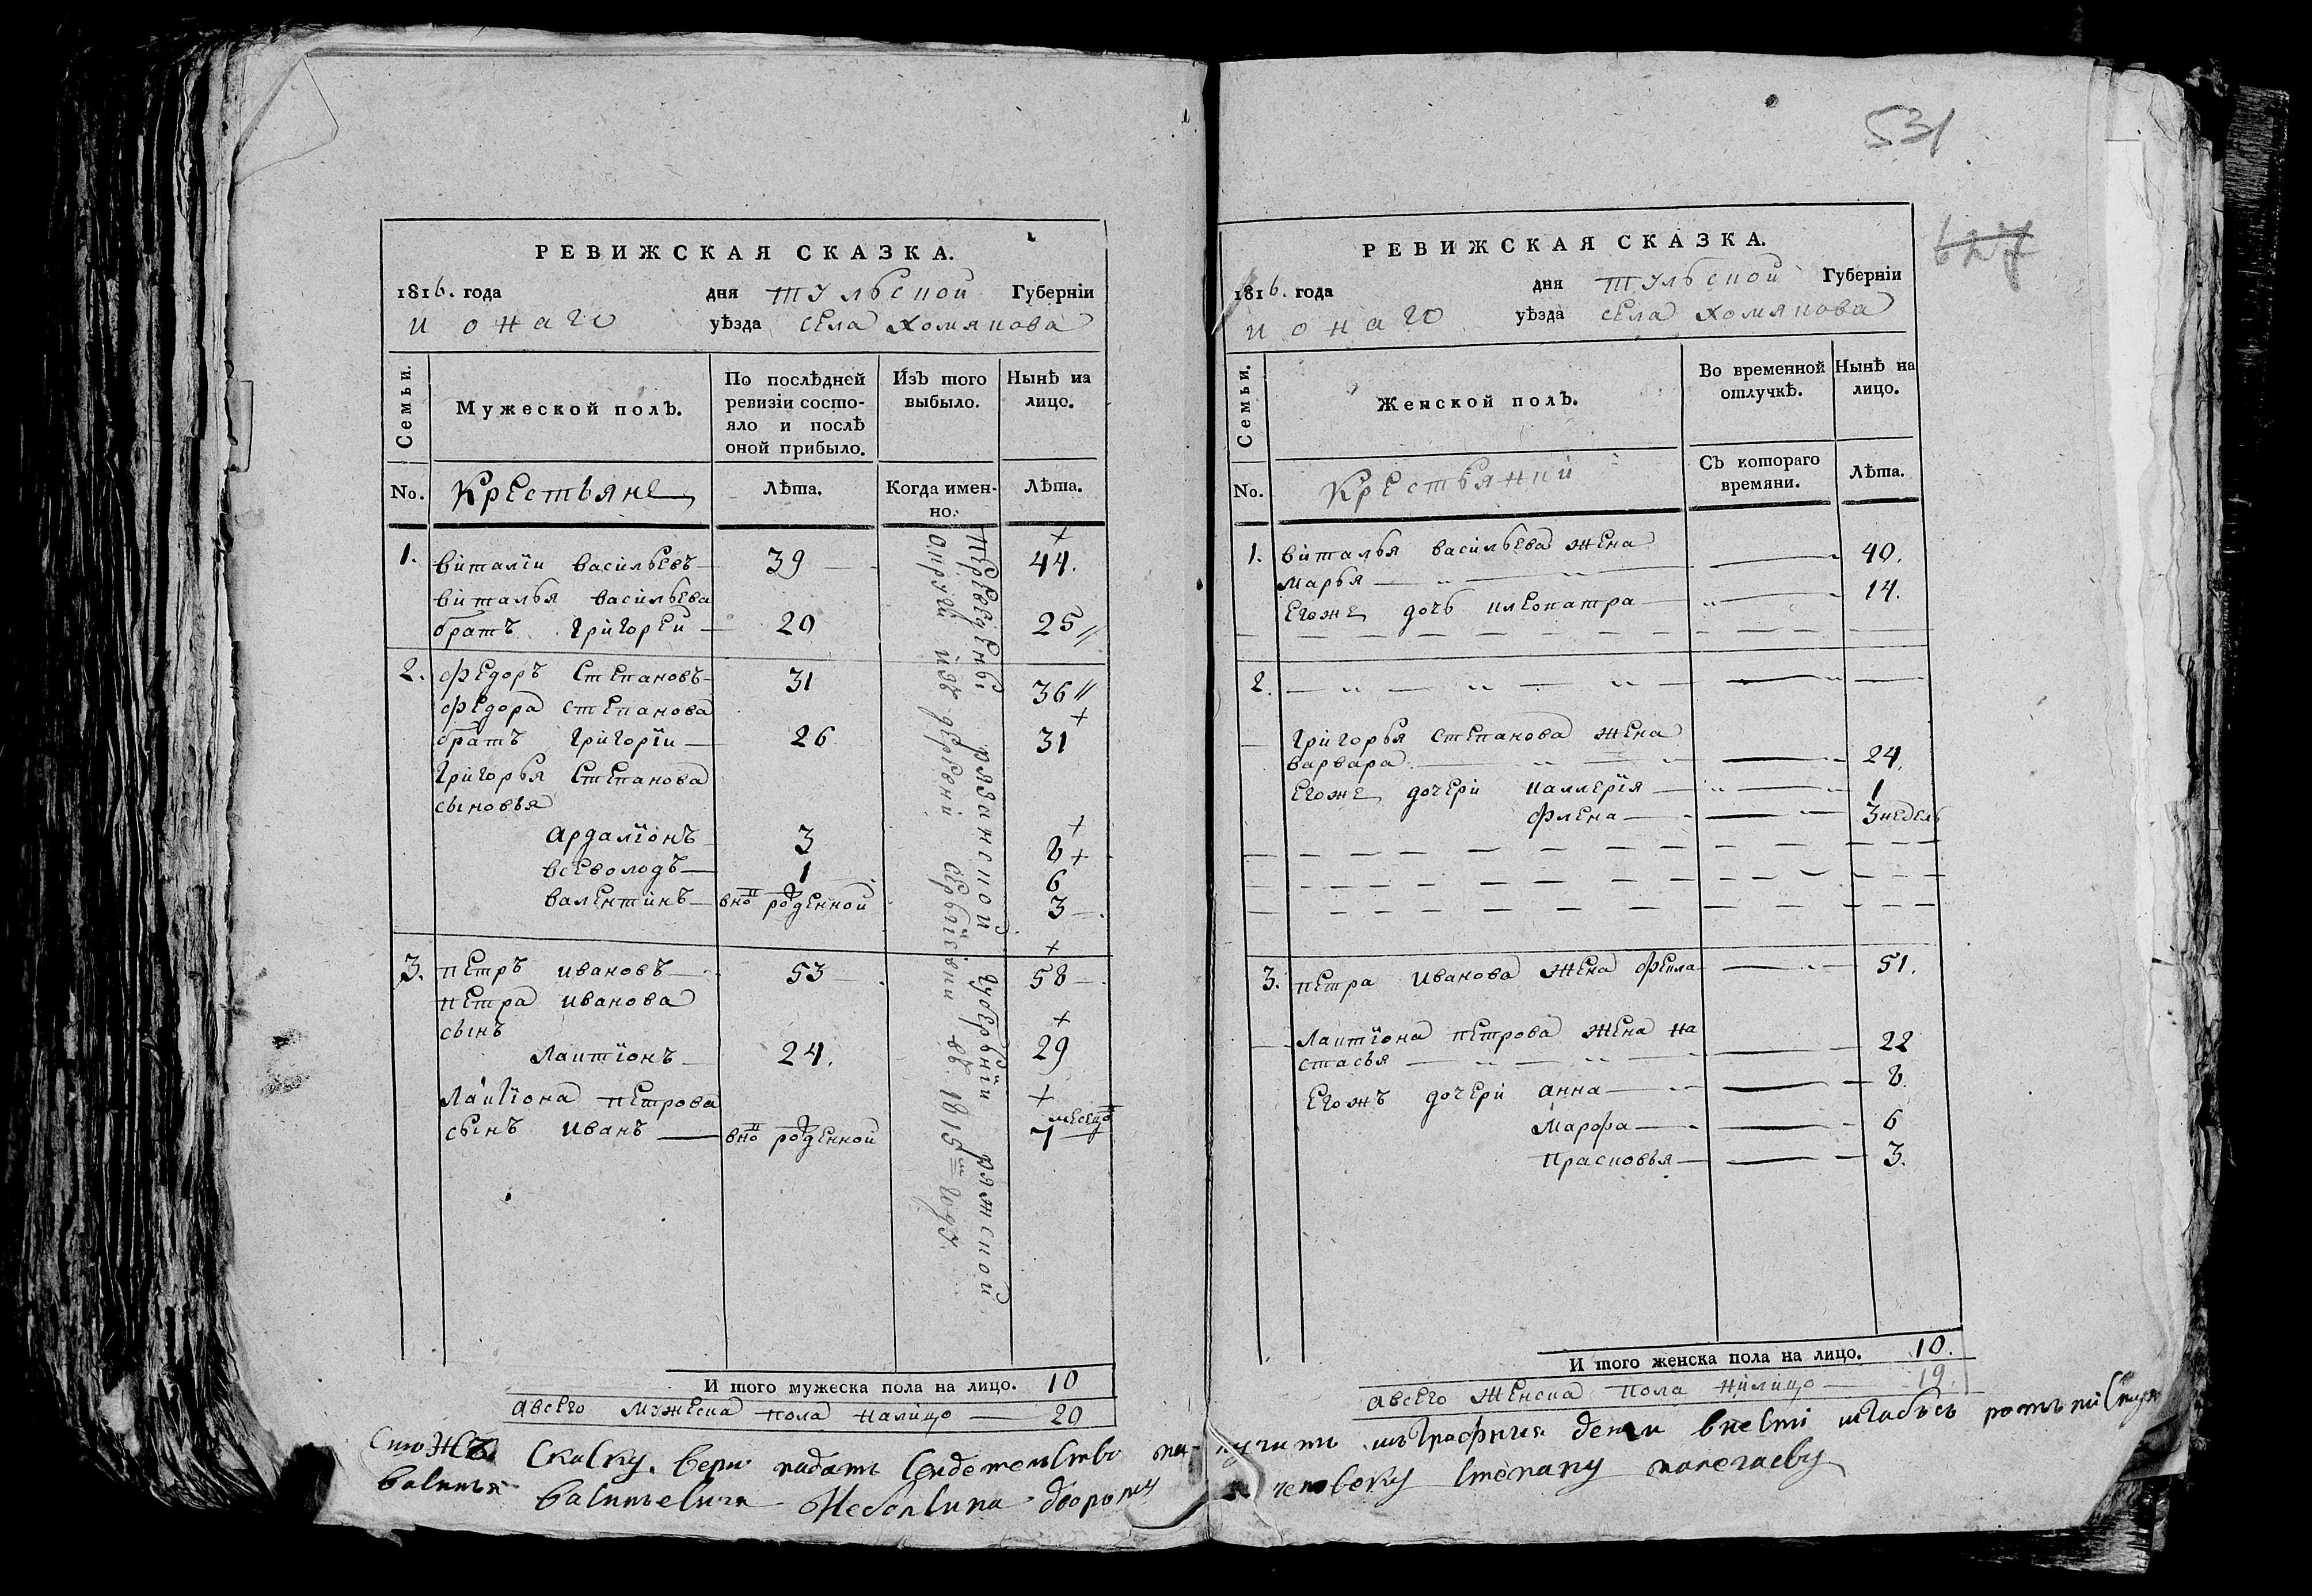 РЕВИЖСКАЯ СКАЗКА.
1816. года дня Тульской Губерніи
и онаго уѣзда села Хомякова
Семьи.
Мужеской полъ.
По послѣдней ревизіи состо-
яло и послѣ
оной прибыло.
Изъ того
выбыло.
Нынѣ на
лицо.
No.
Крестьяне
Лѣта.
Когда имен-
но.
Лѣта.
1. Виталіи Васильевъ 39 44.
Виталья Васильева
братъ Григореи 20 25
2. Федоръ Степановъ 31 36
Федора Степанова
братъ Григории 26 31
Григорья Степанова
сыновья
Ардаліонъ 3 8
Всеволодъ 1 6
Валентинъ вновь рожденной 3
3. Петръ Ивановъ 53 58
Петра Иванова
сынъ
Лактіонъ 24. 29
Лактіона Петрова
сынъ Иванъ вновь рожденной 7 месецов
Переведены Рязанской губерніи Ряжской
округи изъ деревни в 1815м году.
И того мужеска пола на лицо. 10
а всего мужеска пола налицо 20
531
627
РЕВИЖСКАЯ СКАЗКА.
1816. года дня Тульской Губерніи
и онаго уѣзда села Хомякова
Семьи.
Женской полъ.
Во временной
отлучкѣ.
Нынѣ на
лицо.
No.
Крестьянки
Съ котораго
времяни.
Лѣта.
1. Виталья Васильева жена
Марья 40.
Егоже дочь Клеопатра 14.
2.
Григорья Степанова жена
Варвара 24.
Егоже дочери Каллерія 1
Флена 3 недель
3. Петра Иванова жена Фекла 51.
Лактіона Петрова жена На
стасья 22
Егожъ дочери Анна 8.
Марфа 6
Прасковья 3.
И того женска пола на лицо. 10.
а всего женска пола налицо 19.
Сию скаску верю подать свидетельство получить штрафныя денги внести
Васильевича дворовому человеку Степану